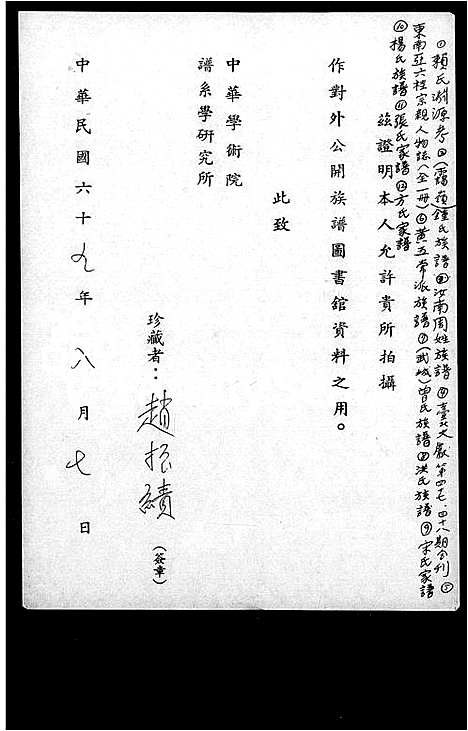 ①賴氏淵源考②(霞嶺)鍾氏族譜③汝南周姓族譜④臺北文獻第四七、四十八期合刊⑤
東南亞六桂宗親人物誌(全一冊)⑥黃五常派族譜⑦(武城)曾氏族譜⑧洪氏族譜⑨宋氏家譜
⑩楊氏族譜⑪張氏家譜⑫方氏家譜
茲證明本人允許貴所拍攝
作對外公開族譜圖書館資料之用。
此致
中華學術院
譜系學研究所
珍藏者：趙振績(簽章)
中華民國六十九年八月七日